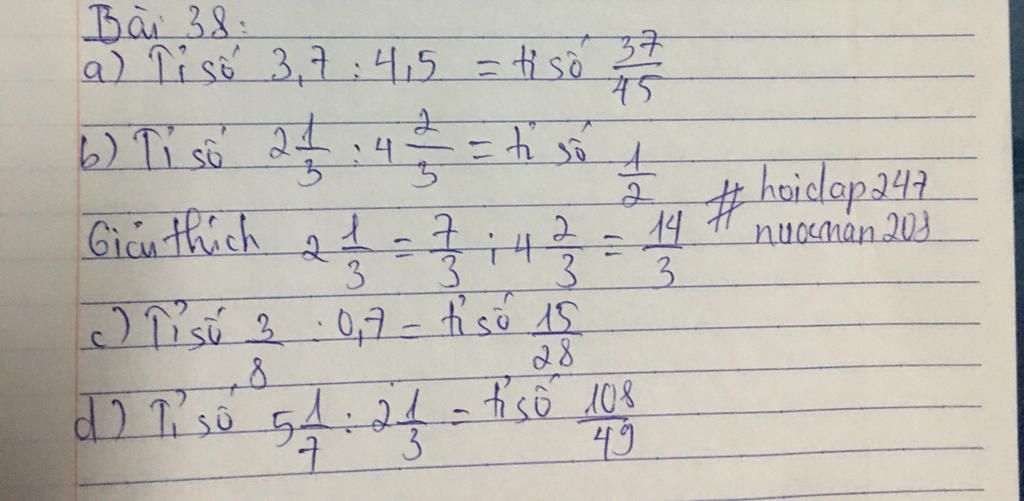 Bài 38:
a) Tỉ số 3,7 : 4,5 = tỉ số 37/45
b) Tỉ số 2 1/3 : 4 2/3 = tỉ số 1/2
# hoidap247
nuocman203
Giải thích 2 1/3 = 7/3 ; 4 2/3 = 14/3
c) Tỉ số 3/8 : 0,7 = tỉ số 15/28
d) Tỉ số 5 1/7 : 2 1/3 = tỉ số 108/49